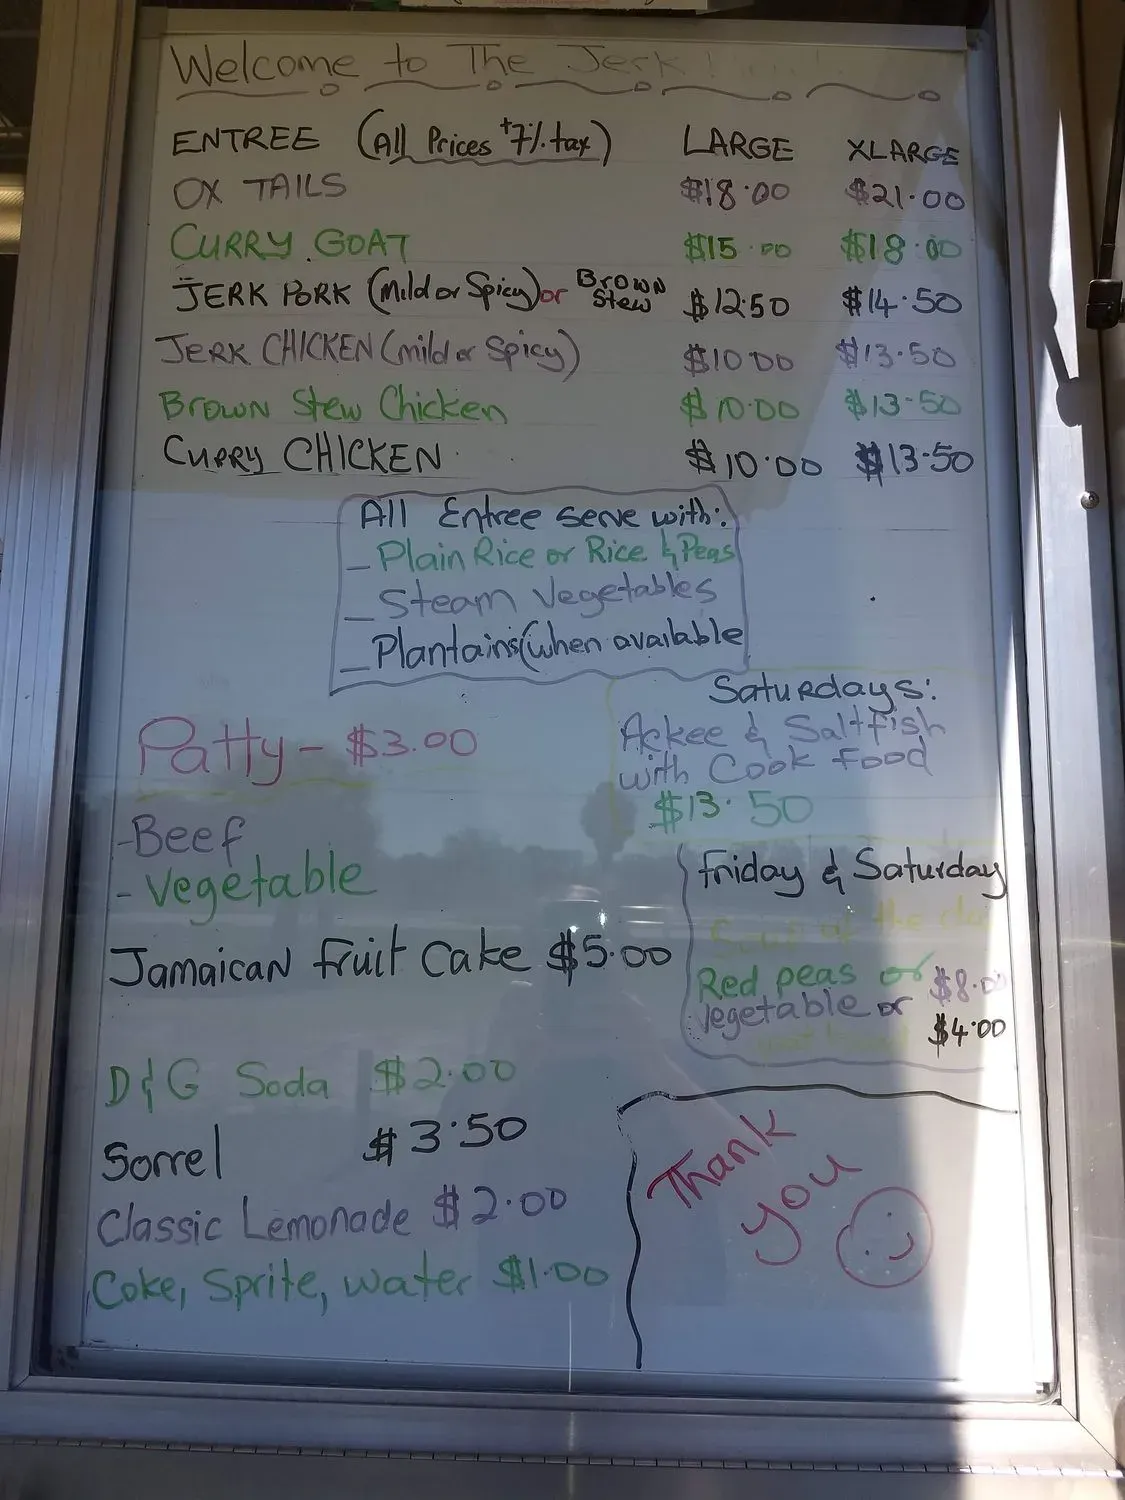 Welcome to The Jerk!
ENTREE (All Prices +7% tax) LARGE XLARGE
OX TAILS $18.00 $21.00
CURRY GOAT $15.00 $18.00
JERK PORK (Mild or Spicy) or Brown Stew $12.50 $14.50
JERK CHICKEN (mild or Spicy) $10.00 $13.50
Brown Stew Chicken $10.00 $13.50
CURRY CHICKEN $10.00 $13.50
All Entree serve with:
- Plain Rice or Rice & Peas
- Steam Vegetables
- Plantains (when available
Saturdays:
Ackee & Saltfish
with Cook Food
$13.50
Patty - $3.00
- Beef
- Vegetable
Jamaican Fruit Cake $5.00
Friday & Saturday
Soup of the day
Red peas or $8.00
Vegetable or $4.00
D&G Soda $2.00
Sorrel $3.50
Classic Lemonade $2.00
Coke, Sprite, Water $1.00
Thank
you